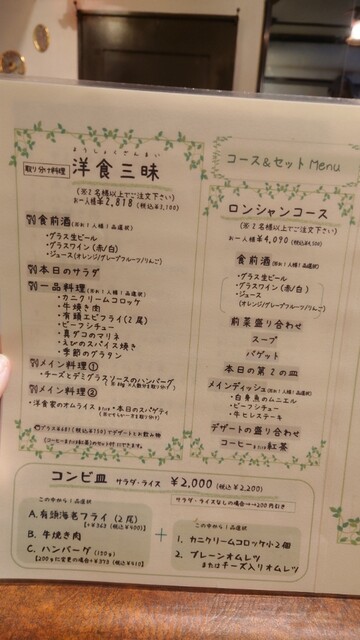 コース&セット Menu
ようしょくざんまい
取り分け料理 洋食三昧
(※2名様以上でご注文下さい)
お一人様¥2,818 (税込¥3,100)
食前酒(※お1人様1品選択)
・グラス生ビール
・グラスワイン(赤/白)
・ジュース(オレンジ/グレープフルーツ/りんご)
本日のサラダ
一品料理(※お1人様1品選択)
・カニクリームコロッケ
・牛焼き肉
・有頭エビフライ(2尾)
・ビーフシチュー
・真ダコのマリネ
・えびのスパイス焼き
・季節のグラタン
メイン料理①
・チーズとデミグラスソースのハンバーグ
メイン料理②
・洋食家のオムライス または 本日のスパゲティ
ロンシャンコース
(※2名様以上でご注文下さい)
お一人様 ¥4,090 (税込¥4,500)
食前酒(※お1人様1品選択)
・グラス生ビール
・グラスワイン(赤/白)
・ジュース
(オレンジ/グレープフルーツ/りんご)
前菜盛り合わせ
スープ
バゲット
本日の第2の皿
メインディッシュ(※お1人様1品選択)
・白身魚のムニエル
・ビーフシチュー
・牛ヒレステーキ
デザートの盛り合わせ
コーヒー または 紅茶
コンビ皿 サラダ・ライス ¥2,000 (¥2,200)
サラダ・ライスなしの場合→200円引き
この中から1品選択
A. 有頭海老フライ(2尾)
[+¥363 (税込¥400)]
B. 牛焼き肉
C. ハンバーグ(150g)
+
この中から1品選択
1. カニクリームコロッケ小2個
2. プレーンオムレツ
またはチーズ入りオムレツ